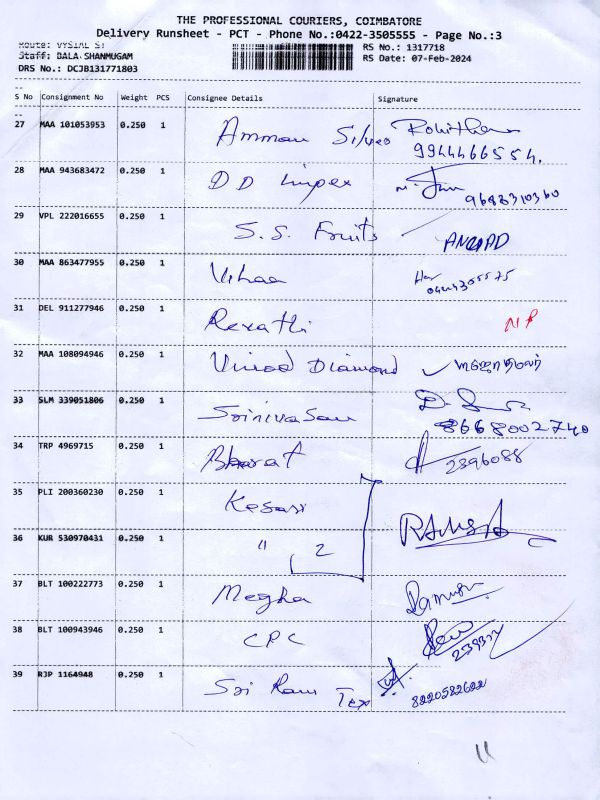 THE PROFESSIONAL COURIERS, COIMBATORE
Delivery Runsheet - PCT - Phone No.:0422-3505555 - Page No.:3
Route: VYSIAL ST
RS No.: 1317718
Staff: BALA SHANMUGAM
RS Date: 07-Feb-2024
DRS No.: DCJB131771803
S No Consignment No Weight PCS Consignee Details Signature
27 MAA 101053953 0.250 1 Amman Silver
9944466554.
28 MAA 943683472 0.250 1 DD Impex
9688310360
29 VPL 222016655 0.250 1 S.S. Fruits
30 MAA 863477955 0.250 1
31 DEL 911277946 0.250 1 Revathi NP
32 MAA 108094946 0.250 1 Vinod Diamond
33 SLM 339051806 0.250 1 Srinivasan
8668002740
34 TRP 4969715 0.250 1 Bharat 2396088
35 PLI 200360230 0.250 1 Kesari
36 KUR 530970431 0.250 1 " 2
37 BLT 100222773 0.250 1 Megha
38 BLT 100943946 0.250 1 CPC
39 RJP 1164948 0.250 1 Sri Ram Tex
8220582622